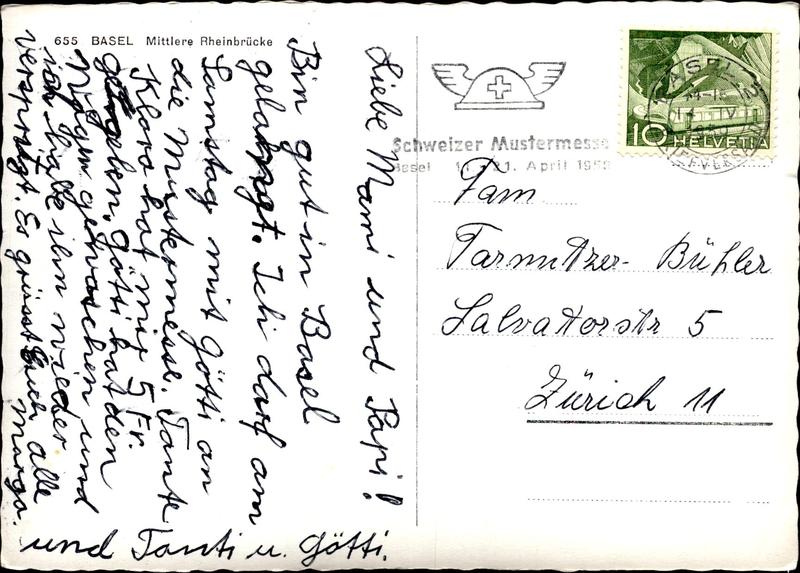 655 BASEL Mittlere Rheinbrücke
Liebe Mami und Papi!
Bin gut in Basel
gelangt. Ich darf am
Samstag mit Götti an
die Mustermesse. Tante
Klara hat mir 5 Fr.
gegeben. Götti hat den
Wagen gewaschen und
ich habe ihn wieder
verspritzt. Es grüsst Euch alle
Marga.
und Tanti u. Götti.
Schweizer Mustermesse
Basel 21. April
BASEL 2
10 HELVETIA
Fam
Tarnutzer-Bühler
Salvatorstr 5
Zürich 11